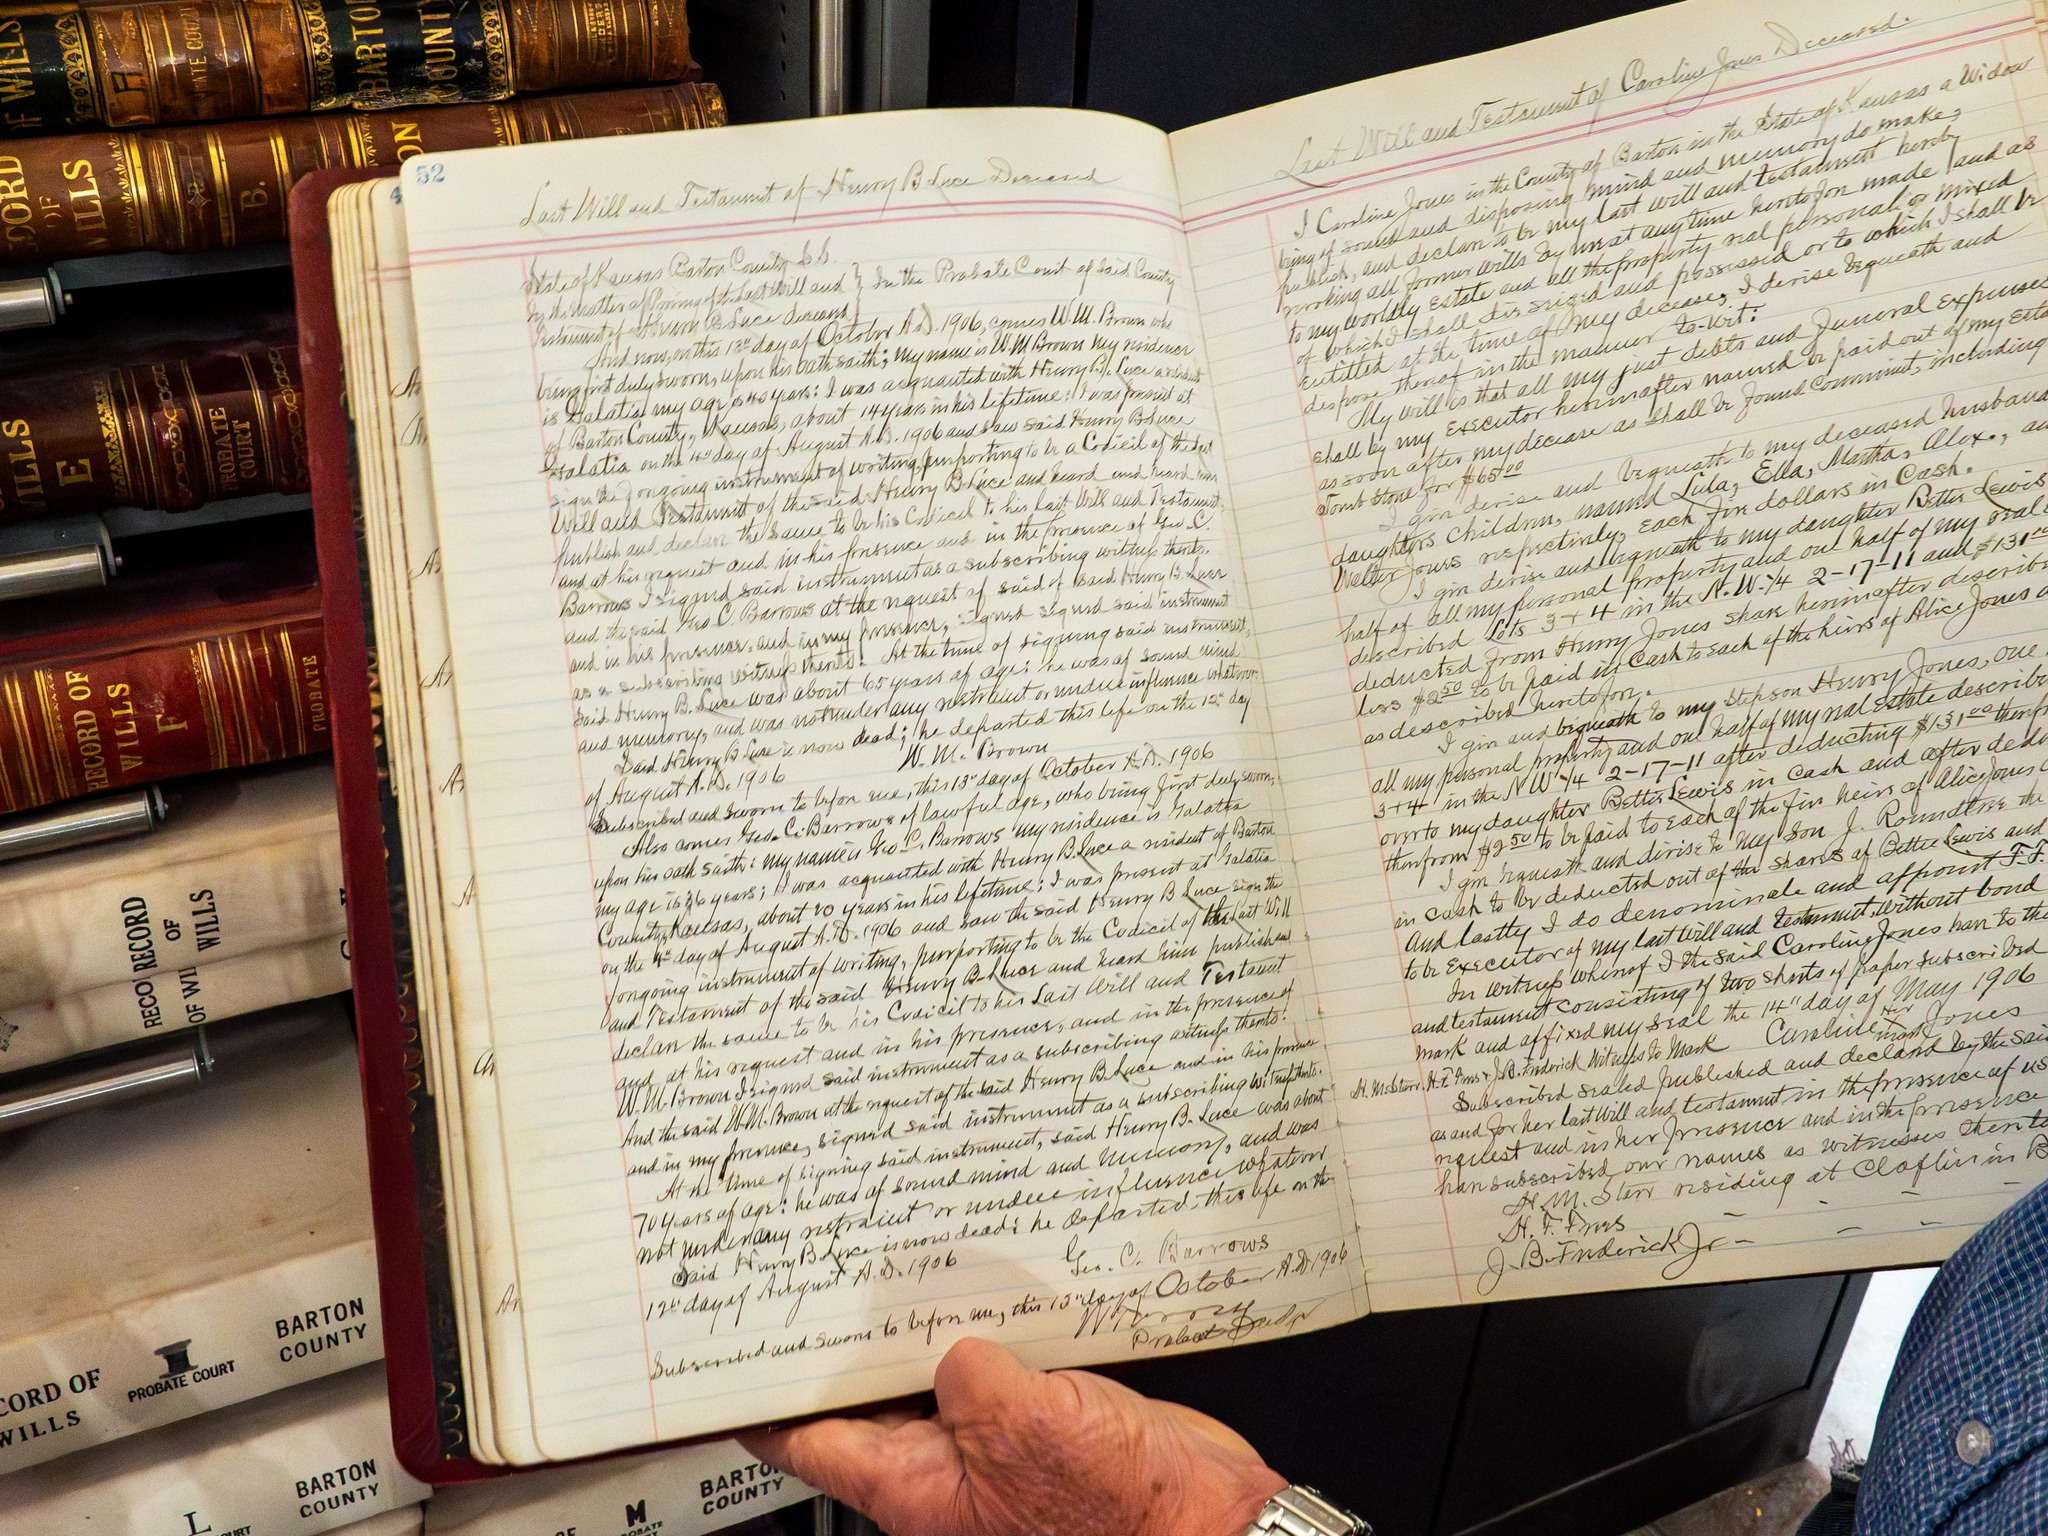 OF WILLS
PROBATE COURT
BARTON
COUNTY
RECORD
OF
WILLS
B.
WILLS
E
PROBATE
COURT
RECORD OF
WILLS
F
PROBATE
RECORD
OF
WILLS
RECORD OF
WILLS
PROBATE COURT
BARTON
COUNTY
L
BARTON
COUNTY
M
BARTON
COUNTY
52
Last Will and Testament of Henry B Luce Deceased
State of Kansas Barton County S.S.
In the Matter of Proving of the Last Will and } In the Probate Court of Said County
Testament of Henry B Luce deceased }
And now, on this 13" day of October A.D. 1906, comes W.M. Brown who
being first duly sworn, upon his oath saith; My name is W.M Brown My residence
is Galatia my age is 40 years; I was acquainted with Henry B. Luce a resident
of Barton County, Kansas, about 14 years in his lifetime; I was present at
Galatia on the 4th day of August A.D. 1906 and saw said Henry B Luce
sign the foregoing instrument of writing, purporting to be a Codicil of the Last
Will and Testament of the said Henry B Luce and heard and heard him
publish and declare the same to be his Codicil to his Last Will and Testament,
and at his request and in his presence and in the presence of Geo. C.
Barrows I signed said instrument as a subscribing witness thereto.
and the said Geo C. Barrows at the request of said of said Henry B. Luce
and in his presence, and in my presence, signed signed said instrument
as a subscribing witness thereto. At the time of signing said instrument,
said Henry B. Luce was about 65 years of age; he was of sound mind
and memory, and was not under any restraint or undue influence whatever.
Said Henry B Luce is now dead; he departed this life on the 12" day
of August A.D. 1906 W. M. Brown
Subscribed and sworn to before me, this 13" day of October A.D. 1906
Also comes Geo. C. Barrows of lawful age, who being first duly sworn,
upon his oath saith: my name is Geo C. Barrows my residence is Galatia
my age is 36 years; I was acquainted with Henry B. Luce a resident of Barton
County, Kansas, about 20 years in his lifetime; I was present at Galatia
on the 4th day of August A.D. 1906 and saw the said Henry B Luce sign the
foregoing instrument of writing, purporting to be the Codicil of the Last Will
and Testament of the said Henry B. Luce and heard him publish and
declare the same to be his Codicil to his Last Will and Testament
and at his request and in his presence, and in the presence of
W.M. Brown I signed said instrument as a subscribing witness thereto.
And the said W.M. Brown at the request of the said Henry B. Luce and in his presence
and in my presence, signed said instrument as a subscribing witness thereto.
At the time of signing said instrument, said Henry B. Luce was about
70 years of age; he was of sound mind and memory, and was
not under any restraint or undue influence whatever
Said Henry B Luce is now dead; he departed this life on the
12th day of August A.D. 1906 Geo. C. Barrows
Subscribed and sworn to before me, this 13" day of October A.D. 1906
Probate Judge
Last Will and Testament of Caroline Jones Deceased.
I Caroline Jones in the County of Barton in the State of Kansas a Widow
being of sound and disposing mind and memory do make,
publish, and declare to be my last will and testament hereby
revoking all former wills by me at any time heretofore made and as
to my worldly Estate and all the property real personal or mixed
of which I shall die seized and possessed or to which I shall be
entitled at the time of my decease, I devise bequeath and
dispose thereof in the manner to-wit:
My will is that all my just debts and funeral Expenses
shall by my Executor hereinafter named be paid out of my Estate
as soon after my decease as shall be found Convenient, including
Tomb Stone for $65.00
I give devise and bequeath to my deceased husband
daughters Children, named Lula, Ella, Martha, Alex.,
Walter Jones respectively, Each five dollars in Cash.
I give devise and bequeath to my daughter Bettie Lewis
half of all my personal property and one half of my real
described Lots 3+4 in the N.W. 1/4 2-17-11 and $131.00
deducted from Henry Jones share hereinafter described
less $2.50 to be paid in Cash to each of the heirs of Alice Jones
as described heretofore.
I give and bequeath to my stepson Henry Jones, one
all my personal property and one half of my real estate described
3+4 in the NW 1/4 2-17-11 after deducting $131.00
over to my daughter Bettie Lewis in Cash and after
therefrom $2.50 to be paid to each of the five heirs of Alice Jones
I give bequeath and devise to my Son J. Roundtree the
in cash to be deducted out of the shares of Bettie Lewis and
And lastly I do denominate and appoint F.F.
to be Executor of my last Will and testament, without bond
In witness whereof I the said Caroline Jones have to this
and testament consisting of two sheets of paper subscribed
mark and affixed my seal the 14" day of May 1906
Caroline her mark Jones
H. M. Sterr, H.F. Ives & J.B. Frederick Witness to Mark
Subscribed sealed published and declared by the said
as and for her last Will and testament in the presence of us
request and in her presence and in the presence
have subscribed our names as witnesses thereto
H. M. Sterr residing at Claflin in B
H. F. Ives
J. B. Frederick Jr